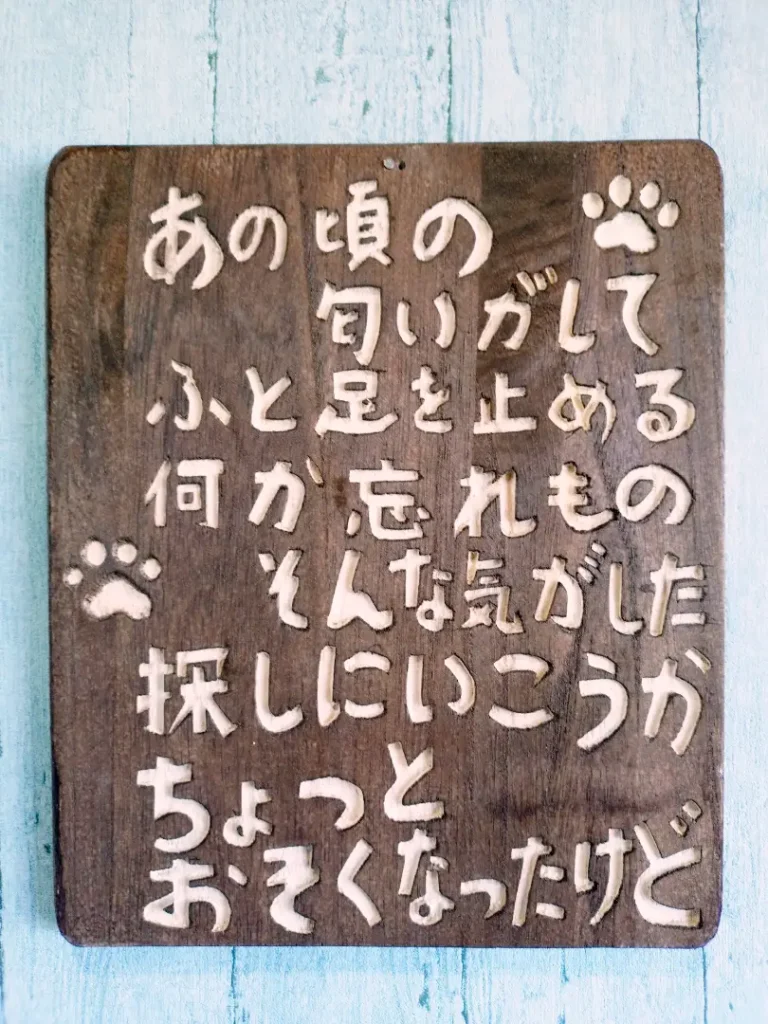 あの頃の
匂いがして
ふと足を止める
何か忘れもの
そんな気がした
探しにいこうか
ちょっと
おそくなったけど